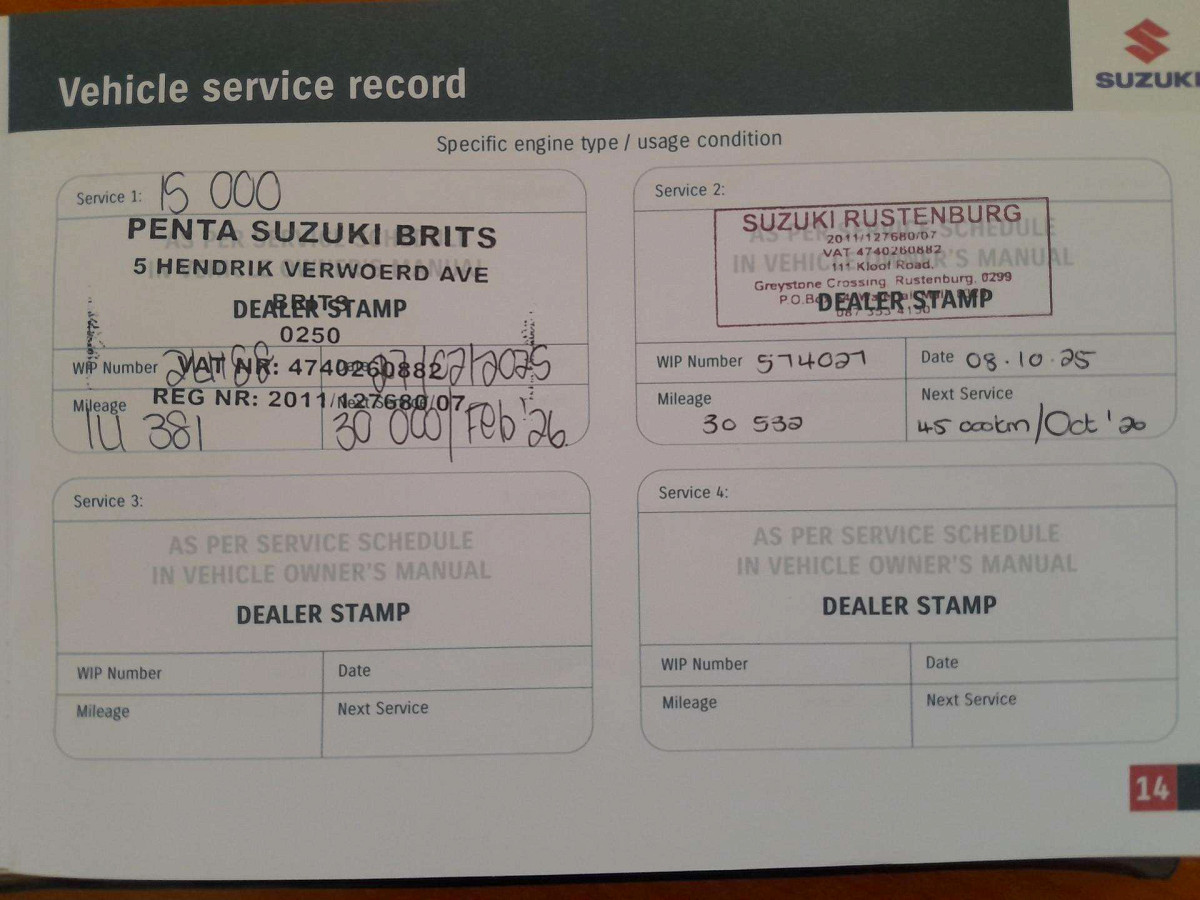 Vehicle service record
SUZUKI
Specific engine type / usage condition
Service 1: 15 000
AS PER SERVICE SCHEDULE
IN VEHICLE OWNER'S MANUAL
PENTA SUZUKI BRITS
5 HENDRIK VERWOERD AVE
BRITS
DEALER STAMP
0250
WIP Number
VAT NR: 4740260882
Date 27/02/2025
REG NR: 2011/127680/07
Mileage 14 381
Next Service 30 000/Feb '26
Service 2:
AS PER SERVICE SCHEDULE
IN VEHICLE OWNER'S MANUAL
SUZUKI RUSTENBURG
2011/127680/07
VAT 4740260882
111 Kloof Road.
Greystone Crossing Rustenburg. 0299
P.O.Box
DEALER STAMP
087 353 4150
WIP Number 574027
Date 08.10.25
Mileage 30 532
Next Service 45 000km/Oct '26
Service 3:
AS PER SERVICE SCHEDULE
IN VEHICLE OWNER'S MANUAL
DEALER STAMP
WIP Number
Date
Mileage
Next Service
Service 4:
AS PER SERVICE SCHEDULE
IN VEHICLE OWNER'S MANUAL
DEALER STAMP
WIP Number
Date
Mileage
Next Service
14